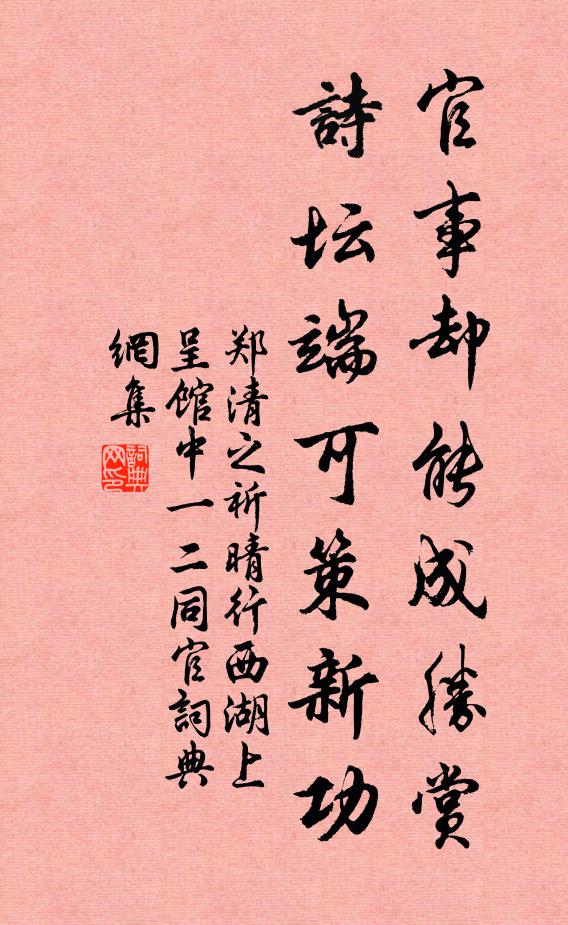 官事却能成勝赏
詩坛端可策新功
郑清之祈晴行西湖上
呈馆中一二同官詞典
網集
詞典網印